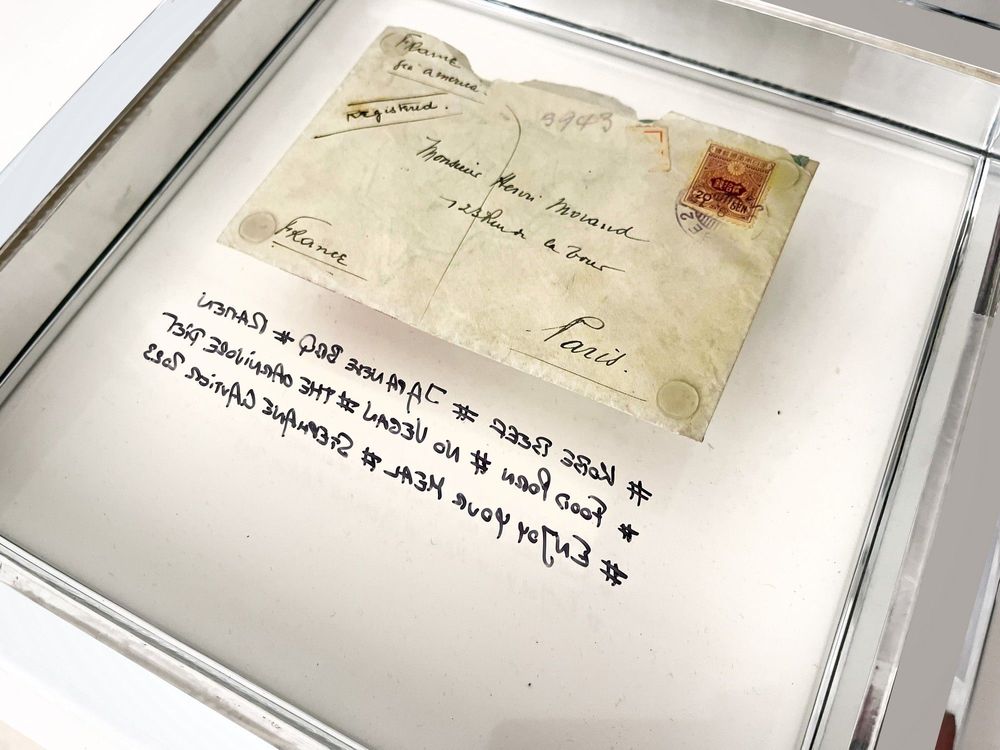 France
via America.
Registered.
3943
Monsieur Henri Morand
Rue de la Tour
Paris.
France
20 SEN
# KOBE BEEF # JAPANESE BBQ # RAMEN
# FOOD PORN # NO VEGAN # THE CARNIVORE DIET
# ENJOY YOUR MEAL # STEPHANE GAUTIER 2023